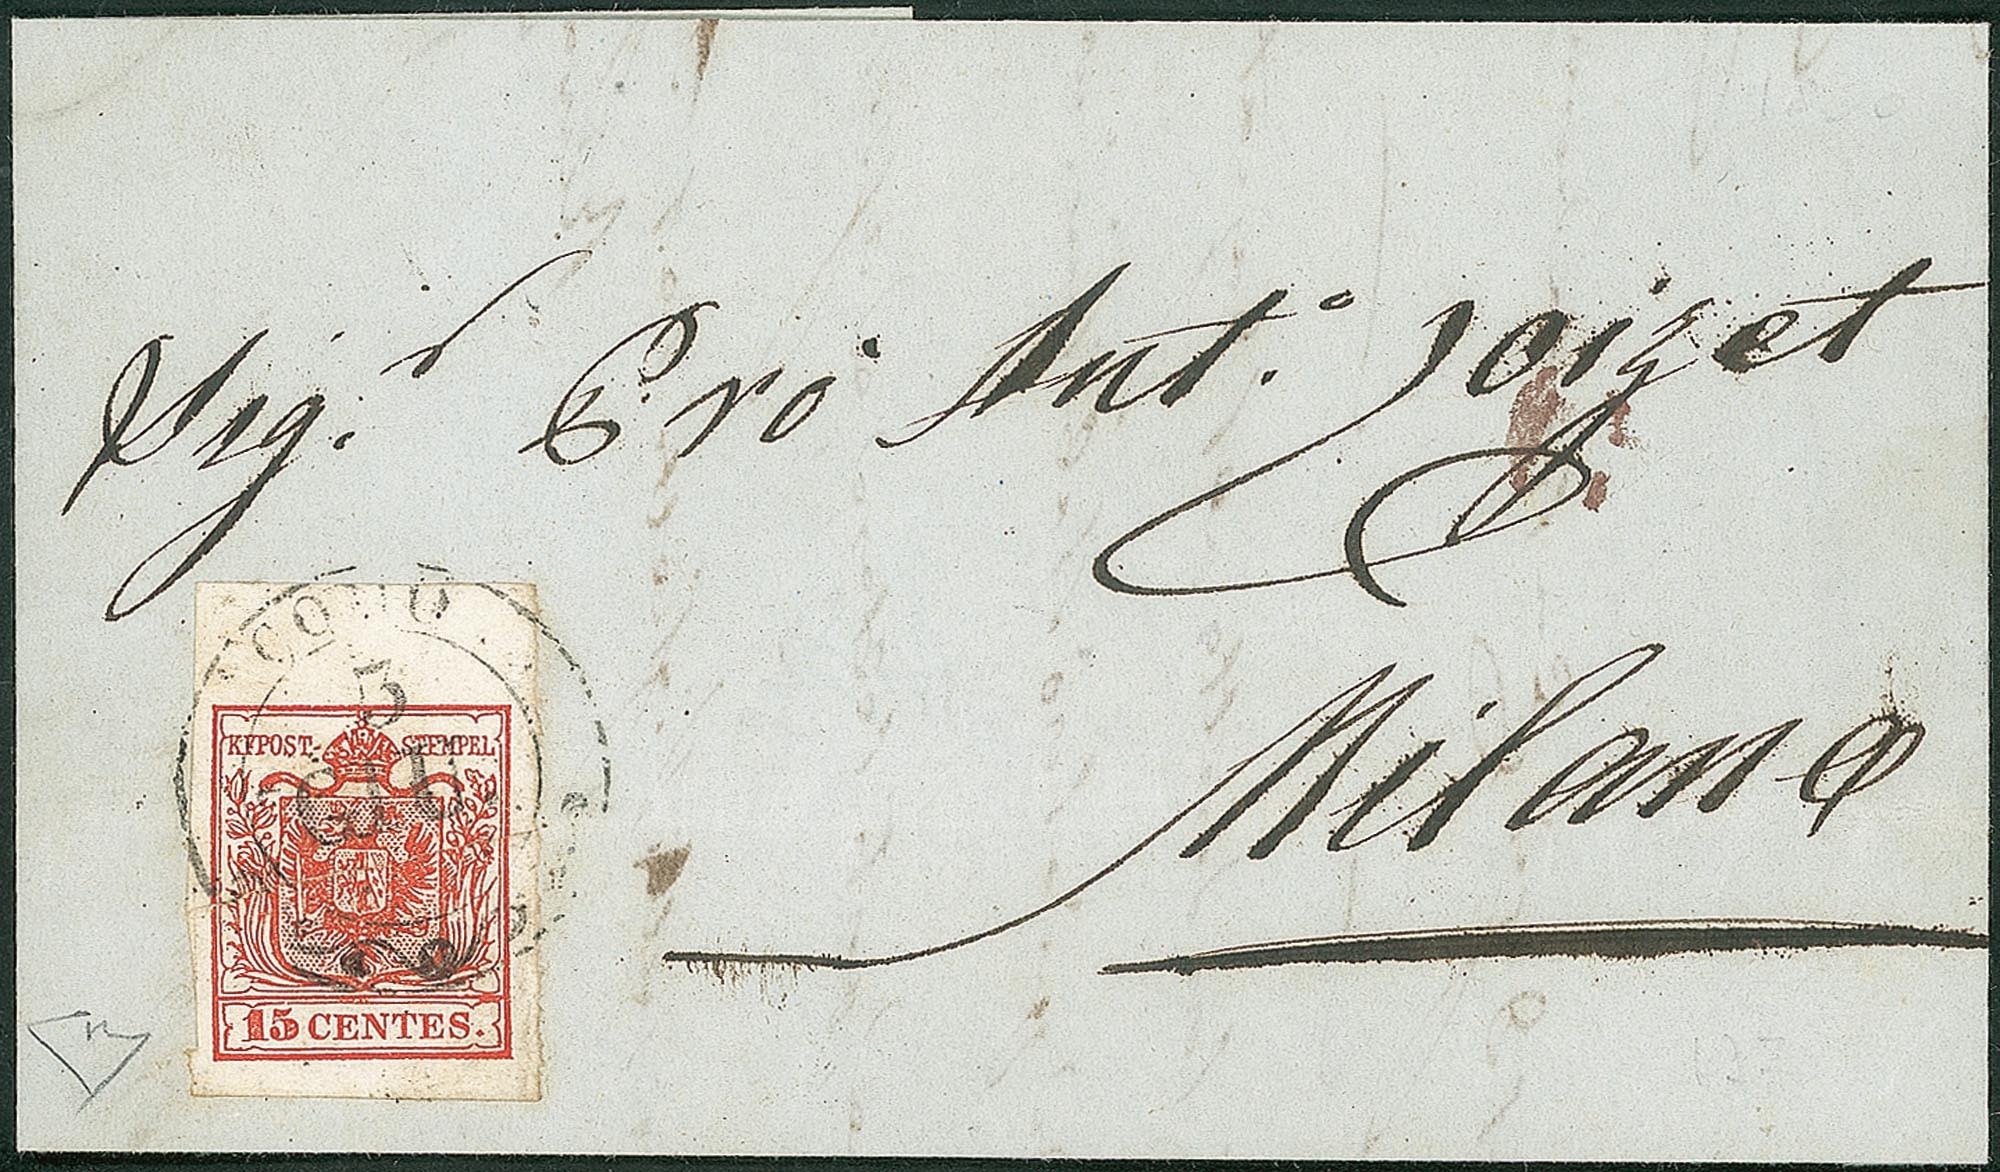 Sig.r Erò Ant.o Joizet
Milano
COMO
3
GIU
KKPOST-STEMPEL
15 CENTES.